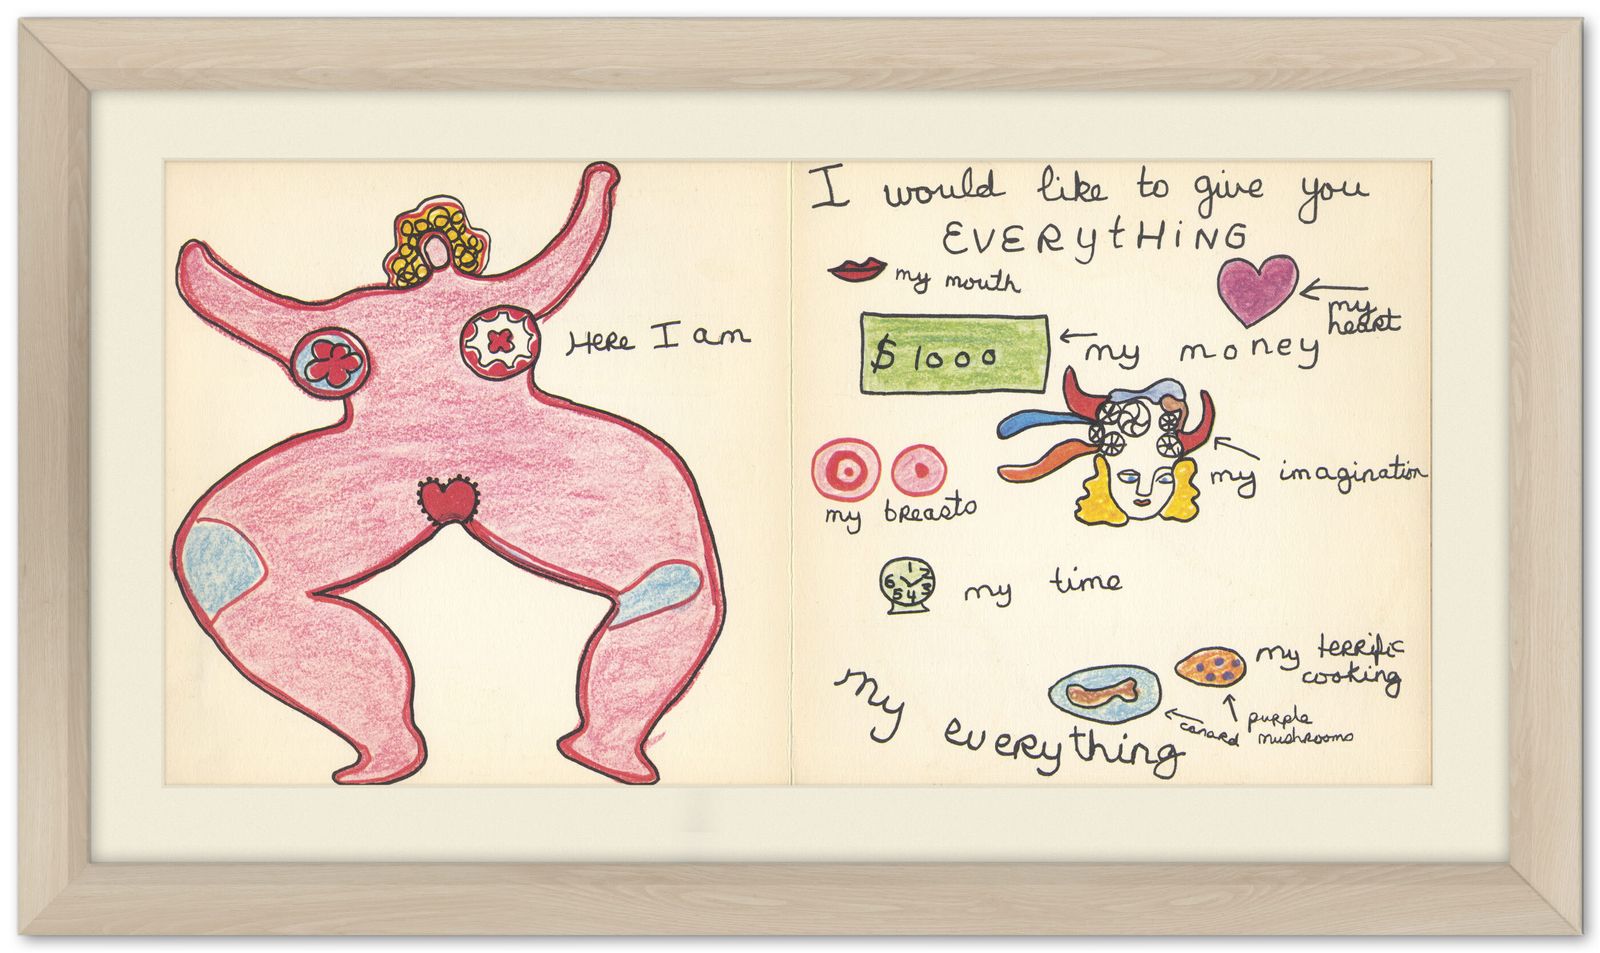 Here I am
I would like to give you
EVERytHiNG
my mouth
my
heart
$ 1000
my money
my imagination
my breasts
1
2
3
4
5
6
my time
my terrific
cooking
canard
purple
mushrooms
my everything